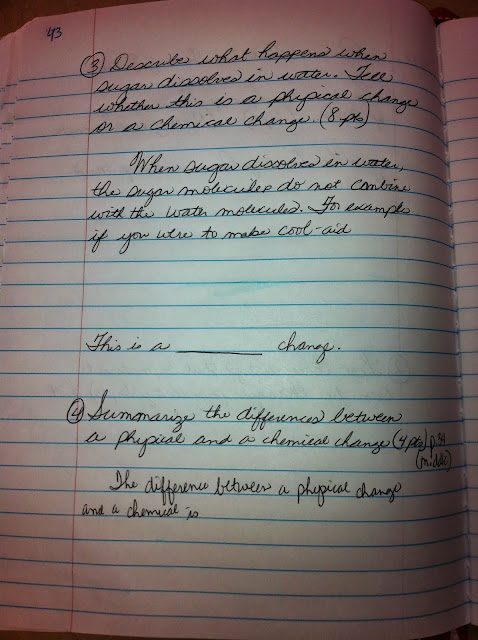 43
③ Describe what happens when
sugar dissolves in water. Tell
whether this is a physical change
or a chemical change (8 pts)
When sugar dissolves in water,
the sugar molecules do not combine
with the water molecules. For example
if you were to make cool-aid
This is a ________ change.
④ Summarize the differences between
a physical and a chemical change (4 pts) p.34
(middle)
The difference between a physical change
and a chemical is